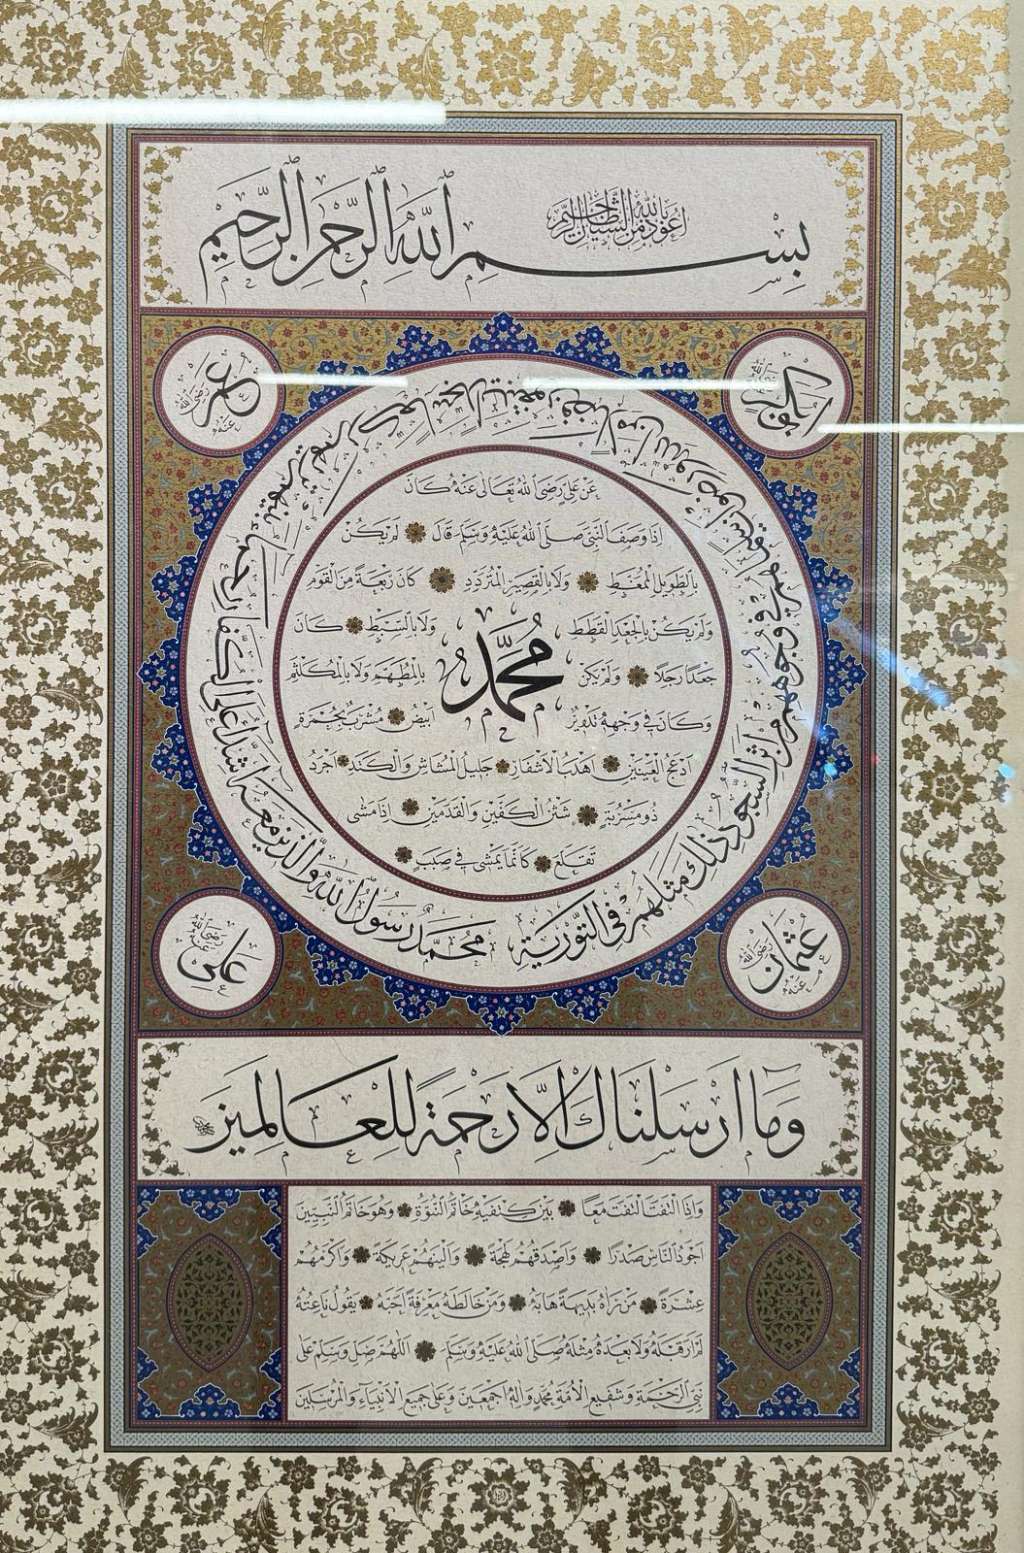 اعوذ بالله من الشيطان الرجيم
بِسْمِ اللهِ الرَّحْمٰنِ الرَّحِيمِ
ابو بكر رضى الله عنه
عمر رضى الله عنه
مُحَمَّد رَسُولُ اللهِ وَالَّذِينَ مَعَهُ اَشِدَّاءُ عَلَى الْكُفَّارِ رُحَمَاءُ بَيْنَهُمْ تَرٰيهُمْ رُكَّعًا سُجَّدًا يَبْتَغُونَ فَضْلًا مِنَ اللهِ وَرِضْوَانًا سِيمَاهُمْ فِى وُجُوهِهِمْ مِنْ اَثَرِ السُّجُودِ ذٰلِكَ مَثَلُهُمْ فِى التَّوْرٰيةِ
عَنْ عَلِىٍّ رَضِىَ اللهُ تَعَالٰى عَنْهُ كَانَ
اِذَا وَصَفَ النَّبِىَّ صَلَّى اللهُ عَلَيْهِ وَسَلَّمَ قَالَ لَمْ يَكُنْ
بِالطَّوِيلِ الْمُمَّغِطِ وَلَا بِالْقَصِيرِ الْمُتَرَدِّدِ كَانَ رَبْعَةً مِنَ الْقَوْمِ
وَلَمْ يَكُنْ بِالْجَعْدِ الْقَطَطِ وَلَا بِالسَّبِطِ كَانَ
مُحَمَّد
جَعْدًا رَجِلًا وَلَمْ يَكُنْ بِالْمُطَهَّمِ وَلَا بِالْمُكَلْثَمِ
وَكَانَ فِى وَجْهِهِ تَدْوِيرٌ اَبْيَضُ مُشْرَبٌ بِحُمْرَةٍ
اَدْعَجُ الْعَيْنَيْنِ اَهْدَبُ الْاَشْفَارِ جَلِيلُ الْمُشَاشِ وَالْكَتَدِ اَجْرَدُ
ذُو مَسْرُبَةٍ شَثْنُ الْكَفَّيْنِ وَالْقَدَمَيْنِ اِذَا مَشٰى
تَقَلَّعَ كَاَنَّمَا يَمْشِى فِى صَبَبٍ
عثمان رضى الله عنه
على رضى الله عنه
وَمَا اَرْسَلْنَاكَ اِلَّا رَحْمَةً لِلْعَالَمِينَ
وَاِذَا الْتَفَتَ الْتَفَتَ مَعًا بَيْنَ كَتِفَيْهِ خَاتَمُ النُّبُوَّةِ وَهُوَ خَاتَمُ النَّبِيِّينَ
اَجْوَدُ النَّاسِ صَدْرًا وَاَصْدَقُهُمْ لَهْجَةً وَاَلْيَنُهُمْ عَرِيكَةً وَاَكْرَمُهُمْ
عِشْرَةً مَنْ رَاٰهُ بَدِيهَةً هَابَهُ وَمَنْ خَالَطَهُ مَعْرِفَةً اَحَبَّهُ يَقُولُ نَاعِتُهُ
لَمْ اَرَ قَبْلَهُ وَلَا بَعْدَهُ مِثْلَهُ صَلَّى اللهُ عَلَيْهِ وَسَلَّمَ اَللّٰهُمَّ صَلِّ وَسَلِّمْ عَلٰى
نَبِىِّ الرَّحْمَةِ وَشَفِيعِ الْاُمَّةِ مُحَمَّدٍ وَاٰلِهِ اَجْمَعِينَ وَعَلٰى جَمِيعِ الْاَنْبِيَاءِ وَالْمُرْسَلِينَ